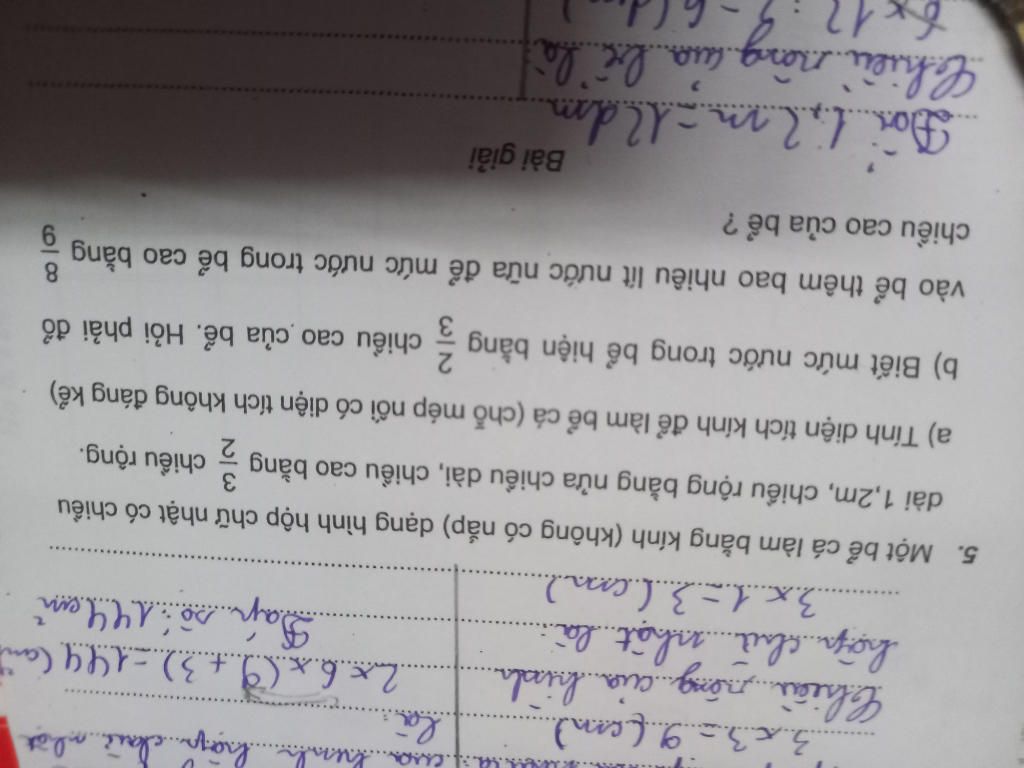 3 x 3 = 9 (cm)
là:
Chiều rộng của hình
2 x 6 x (9 + 3) = 144 (cm²
hộp chữ nhật là:
Đáp số: 144 cm²
3 x 1 = 3 (cm)
5. Một bể cá làm bằng kính (không có nắp) dạng hình hộp chữ nhật có chiều
dài 1,2m, chiều rộng bằng nửa chiều dài, chiều cao bằng 3/2 chiều rộng.
a) Tính diện tích kính để làm bể cá (chỗ mép nối có diện tích không đáng kể)
b) Biết mức nước trong bể hiện bằng 2/3 chiều cao của bể. Hỏi phải đổ
vào bể thêm bao nhiêu lít nước nữa để mức nước trong bể cao bằng 8/9
chiều cao của bể ?
Bài giải
Đổi: 1,2m = 12dm
Chiều rộng của bể là: